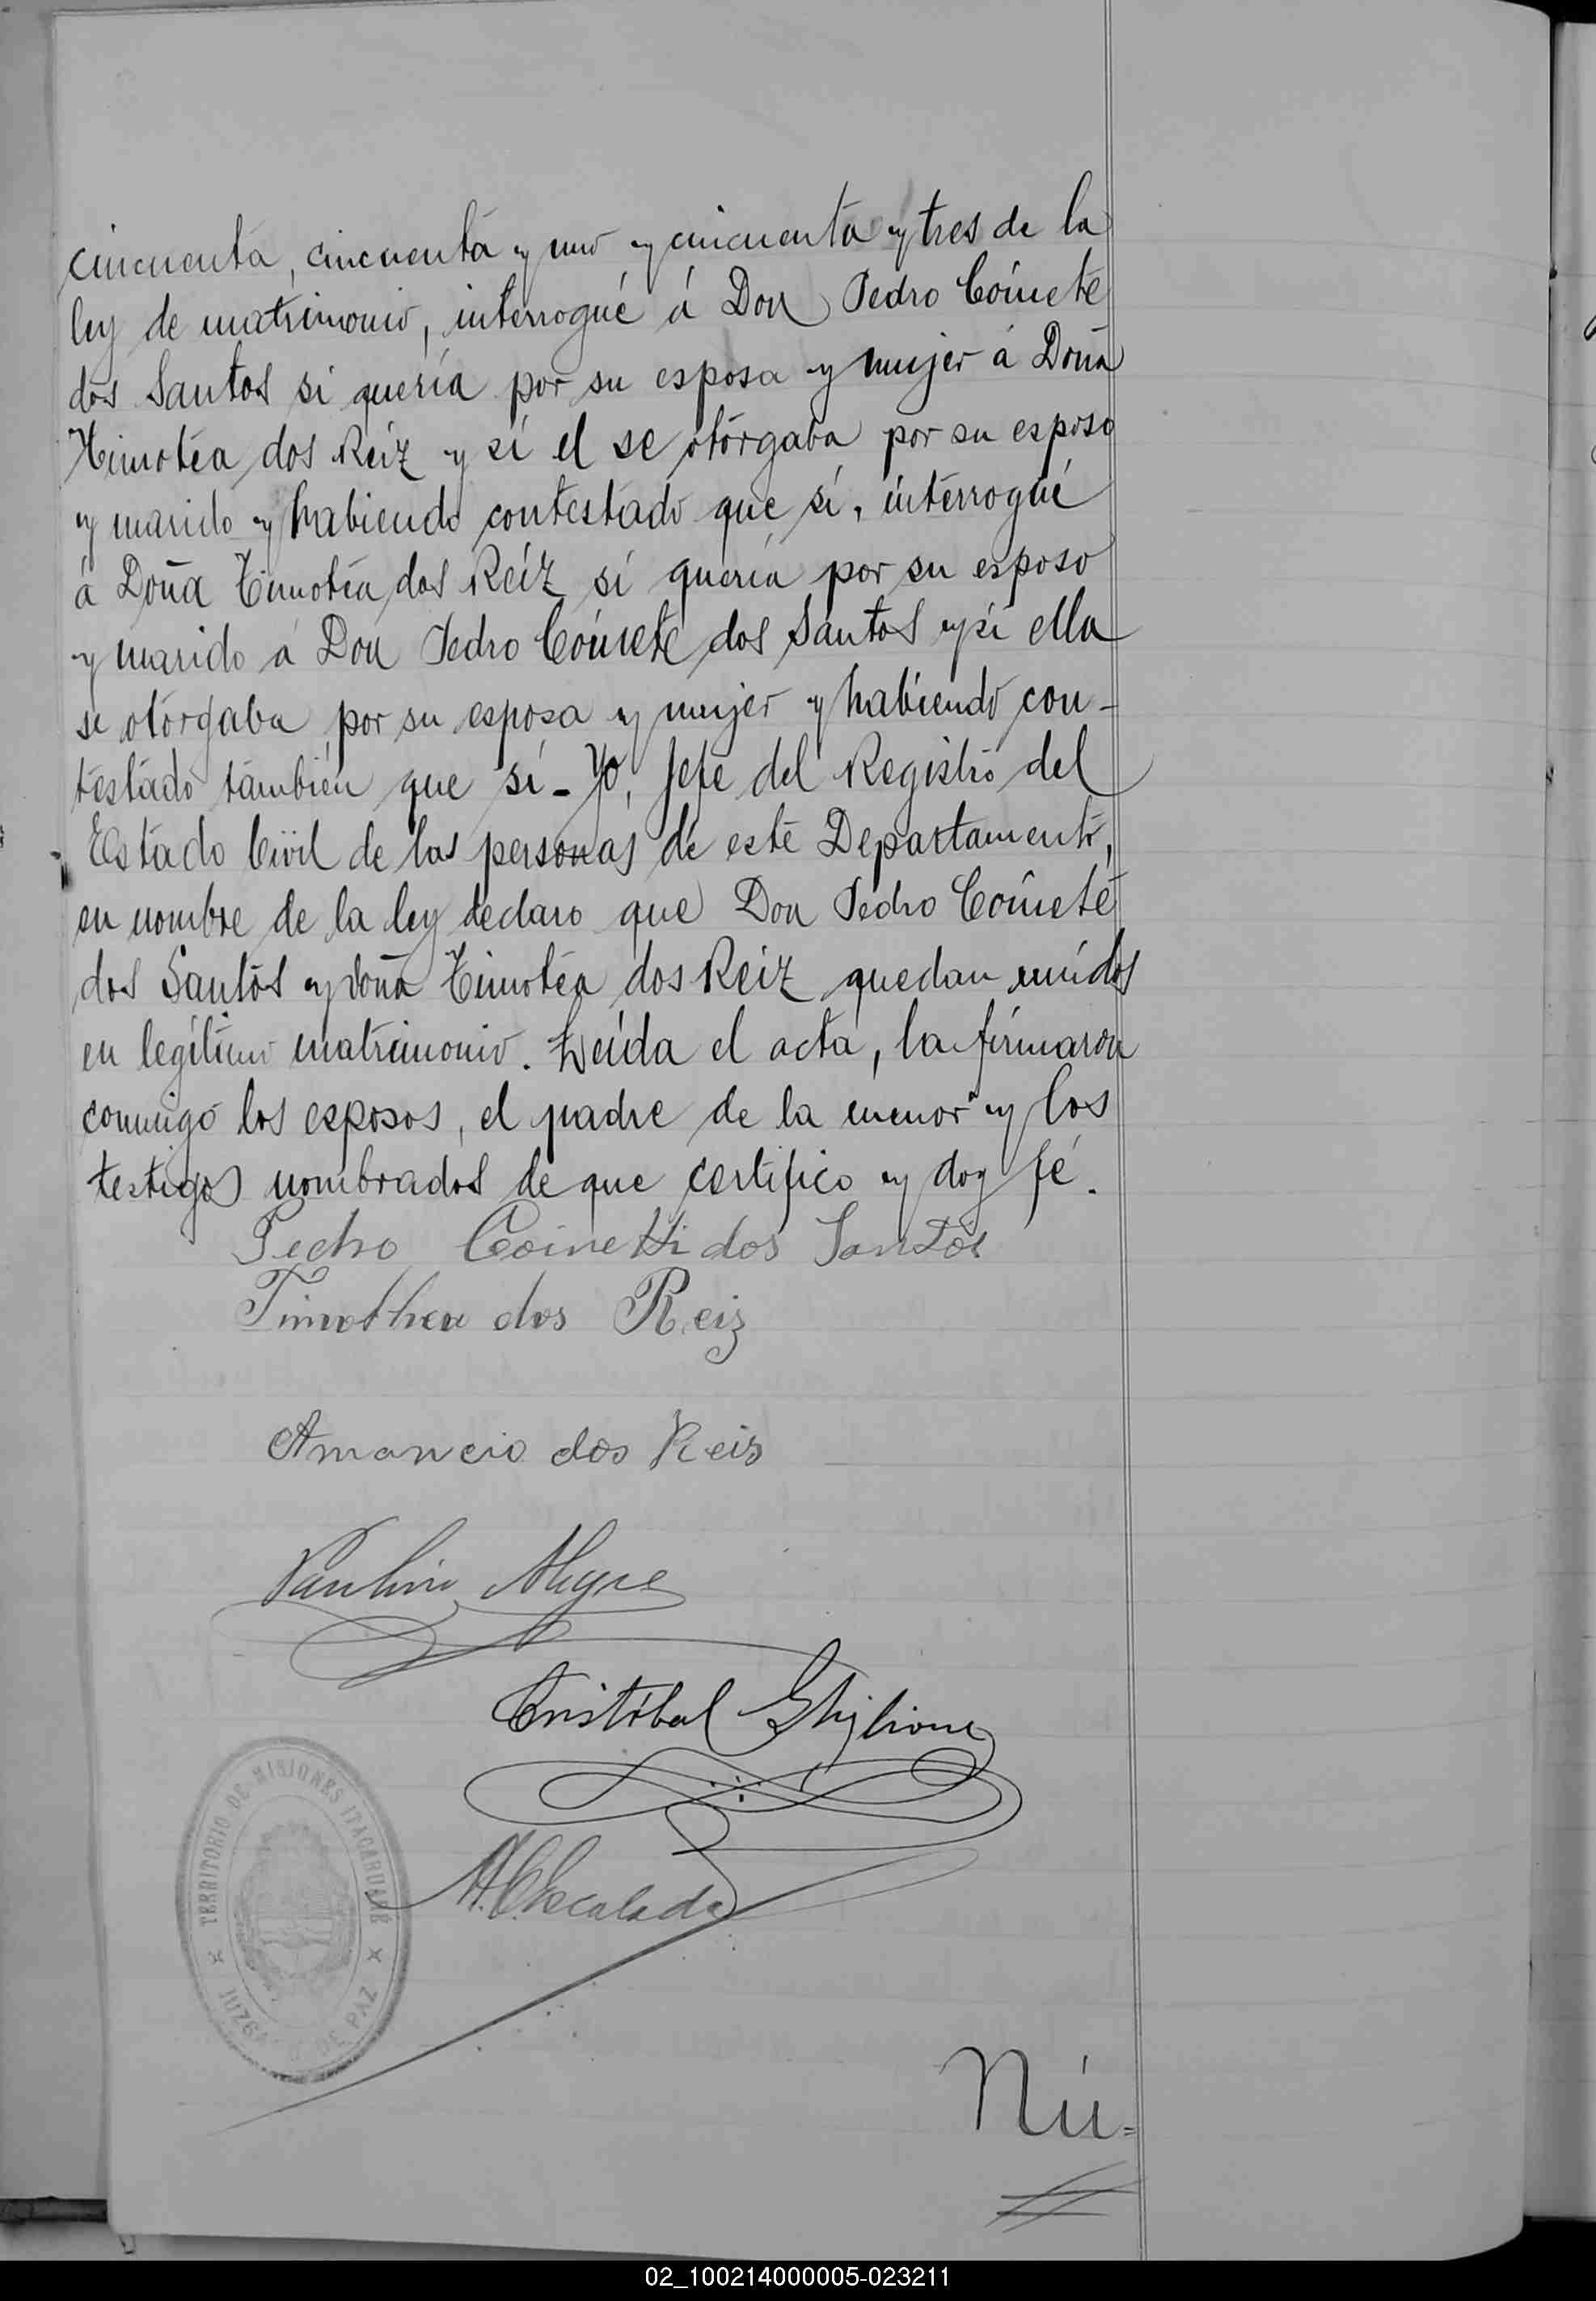 cincuenta, cincuenta y uno y cincuenta y tres de la
ley de matrimonio, interrogué á Don Pedro Coinete
dos Santos si quería por su esposa y mujer á Doña
Timotéa dos Reiz y si el se otorgaba por su esposo
y marido y habiendo contestado que sí, interrogué
á Doña Timotéa dos Reiz si quería por su esposo
y marido á Don Pedro Coinete dos Santos y si ella
se otorgaba por su esposa y mujer y habiendo con-
testado también que sí - Yo, Jefe del Registro del
Estado Civil de las personas de este Departamento,
en nombre de la ley declaro que Don Pedro Coinete
dos Santos y doña Timotéa dos Reiz quedan unidos
en legítimo matrimonio. Leída el acta, la firmaron
conmigo los esposos, el padre de la menor y los
testigos nombrados de que certifico y doy fé.
Pedro Coinetti dos Santos
Timothea dos Reiz
Amancio dos Reis
Paulino Alegre
Cristóbal Ghiglione
Escalada
TERRITORIO DE MISIONES ITACARUARÉ
JUZGADO DE PAZ
Nú=
02_100214000005-023211